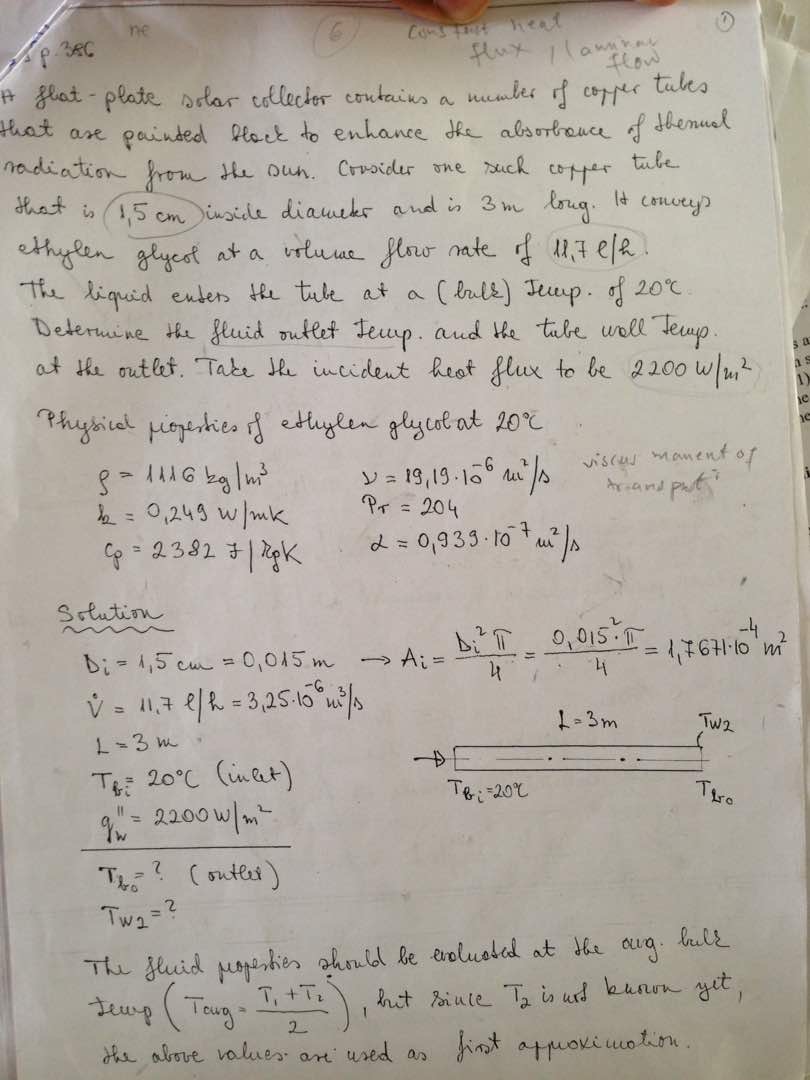 ne
6
Constant heat
①
p. 386
flux, laminar
flow
A flat-plate solar collector contains a number of copper tubes
that are painted black to enhance the absorbance of thermal
radiation from the sun. Consider one such copper tube
that is 1,5 cm inside diameter and is 3 m long. It conveys
ethylen glycol at a volume flow rate of 11,7 l/h.
The liquid enters the tube at a (bulk) temp. of 20°C.
Determine the fluid outlet temp. and the tube wall temp.
at the outlet. Take the incident heat flux to be 2200 W/m²
Physical properties of ethylen glycol at 20°C
ρ = 1116 kg/m³ ν = 19,19·10⁻⁶ m²/s viscus manent of
k = 0,249 W/mK Pr = 204
cp = 2382 J/kgK α = 0,939·10⁻⁷ m²/s
Solution
Di = 1,5 cm = 0,015 m → Ai = Di² π / 4 = 0,015²·π / 4 = 1,7671·10⁻⁴ m²
V̇ = 11,7 l/h = 3,25·10⁻⁶ m³/s
L = 3 m
L = 3 m Tw2
Tbi = 20°C (inlet)
Tbi = 20°C Tbo
q"w = 2200 W/m²
Tbo = ? (outlet)
Tw2 = ?
The fluid properties should be evaluated at the avg. bulk
temp (Tavg = T1 + T2 / 2), but since T2 is not known yet,
the above values are used as first approximation.